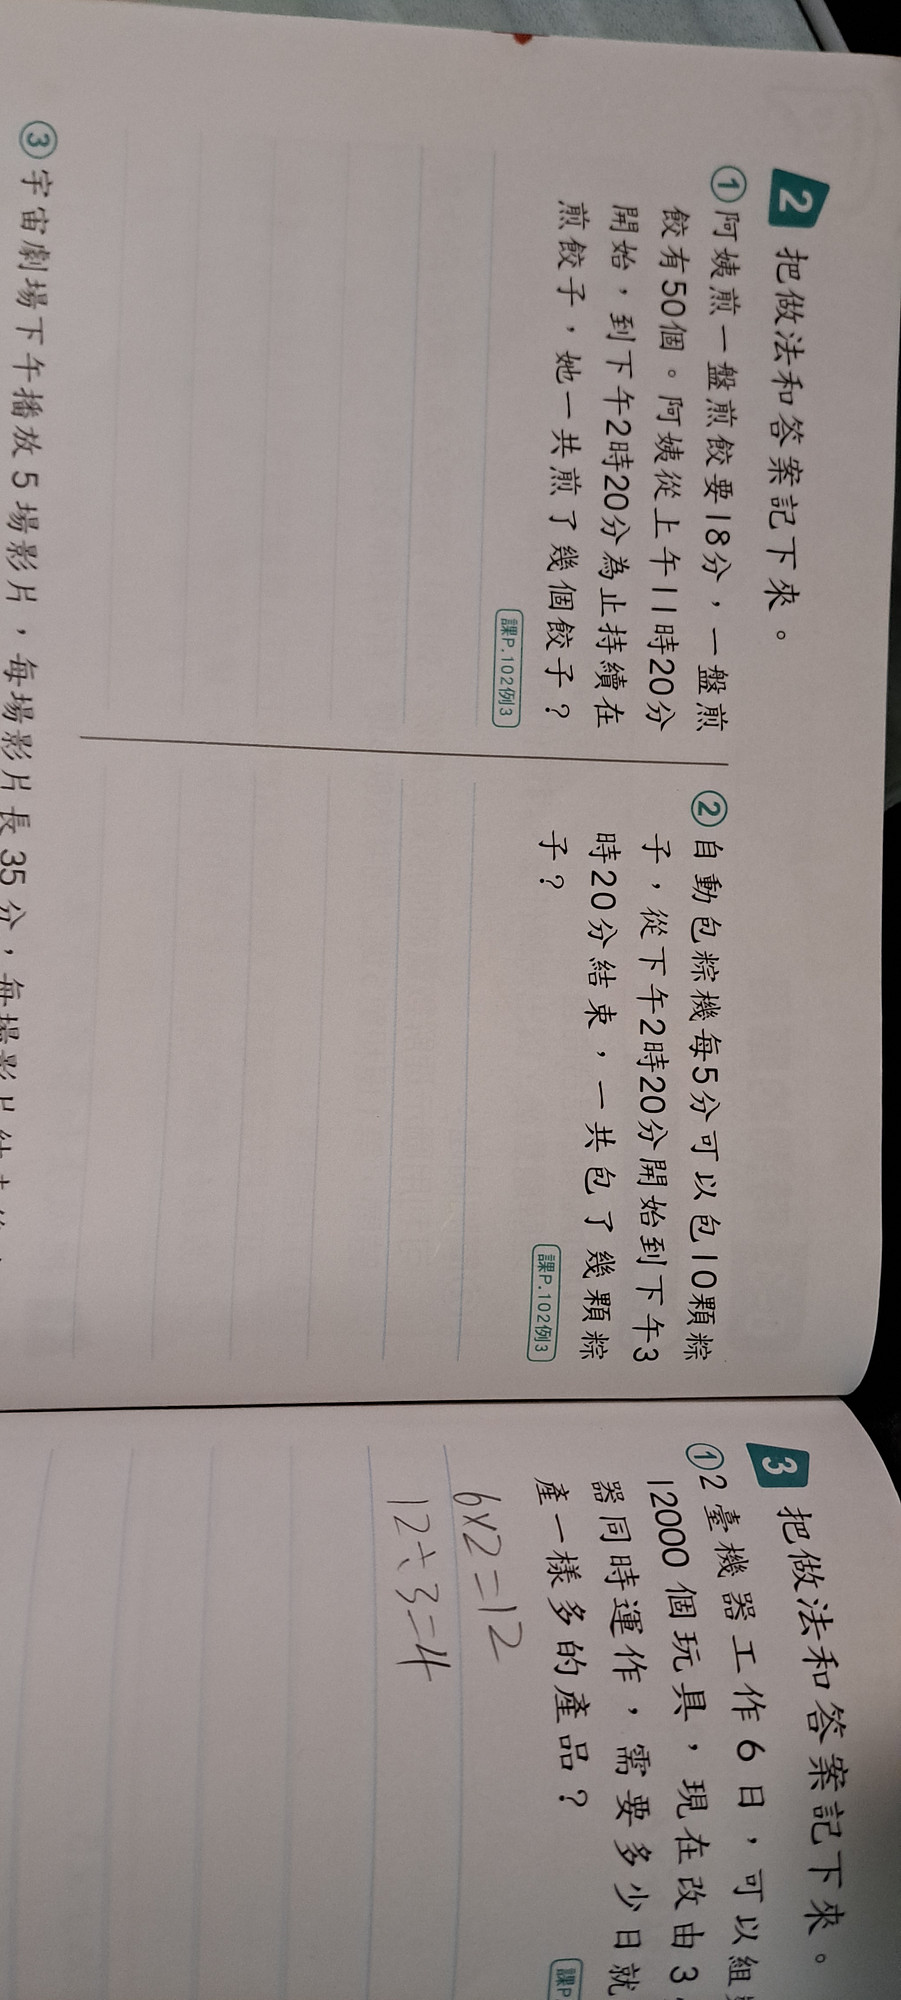 2 把做法和答案記下來。
①阿姨煎一盤煎餃要18分，一盤煎
餃有50個。阿姨從上午11時20分
開始，到下午2時20分為止持續在
煎餃子，她一共煎了幾個餃子？
課P.102例3
②自動包粽機每5分可以包10顆粽
子，從下午2時20分開始到下午3
時20分結束，一共包了幾顆粽
子？
課P.102例3
③宇宙劇場下午播放5場影片，每場影片長35分，每場影片結束後
3 把做法和答案記下來。
①2臺機器工作6日，可以組
12000個玩具，現在改由3
器同時運作，需要多少日就
產一樣多的產品？
課P
6×2=12
12÷3=4